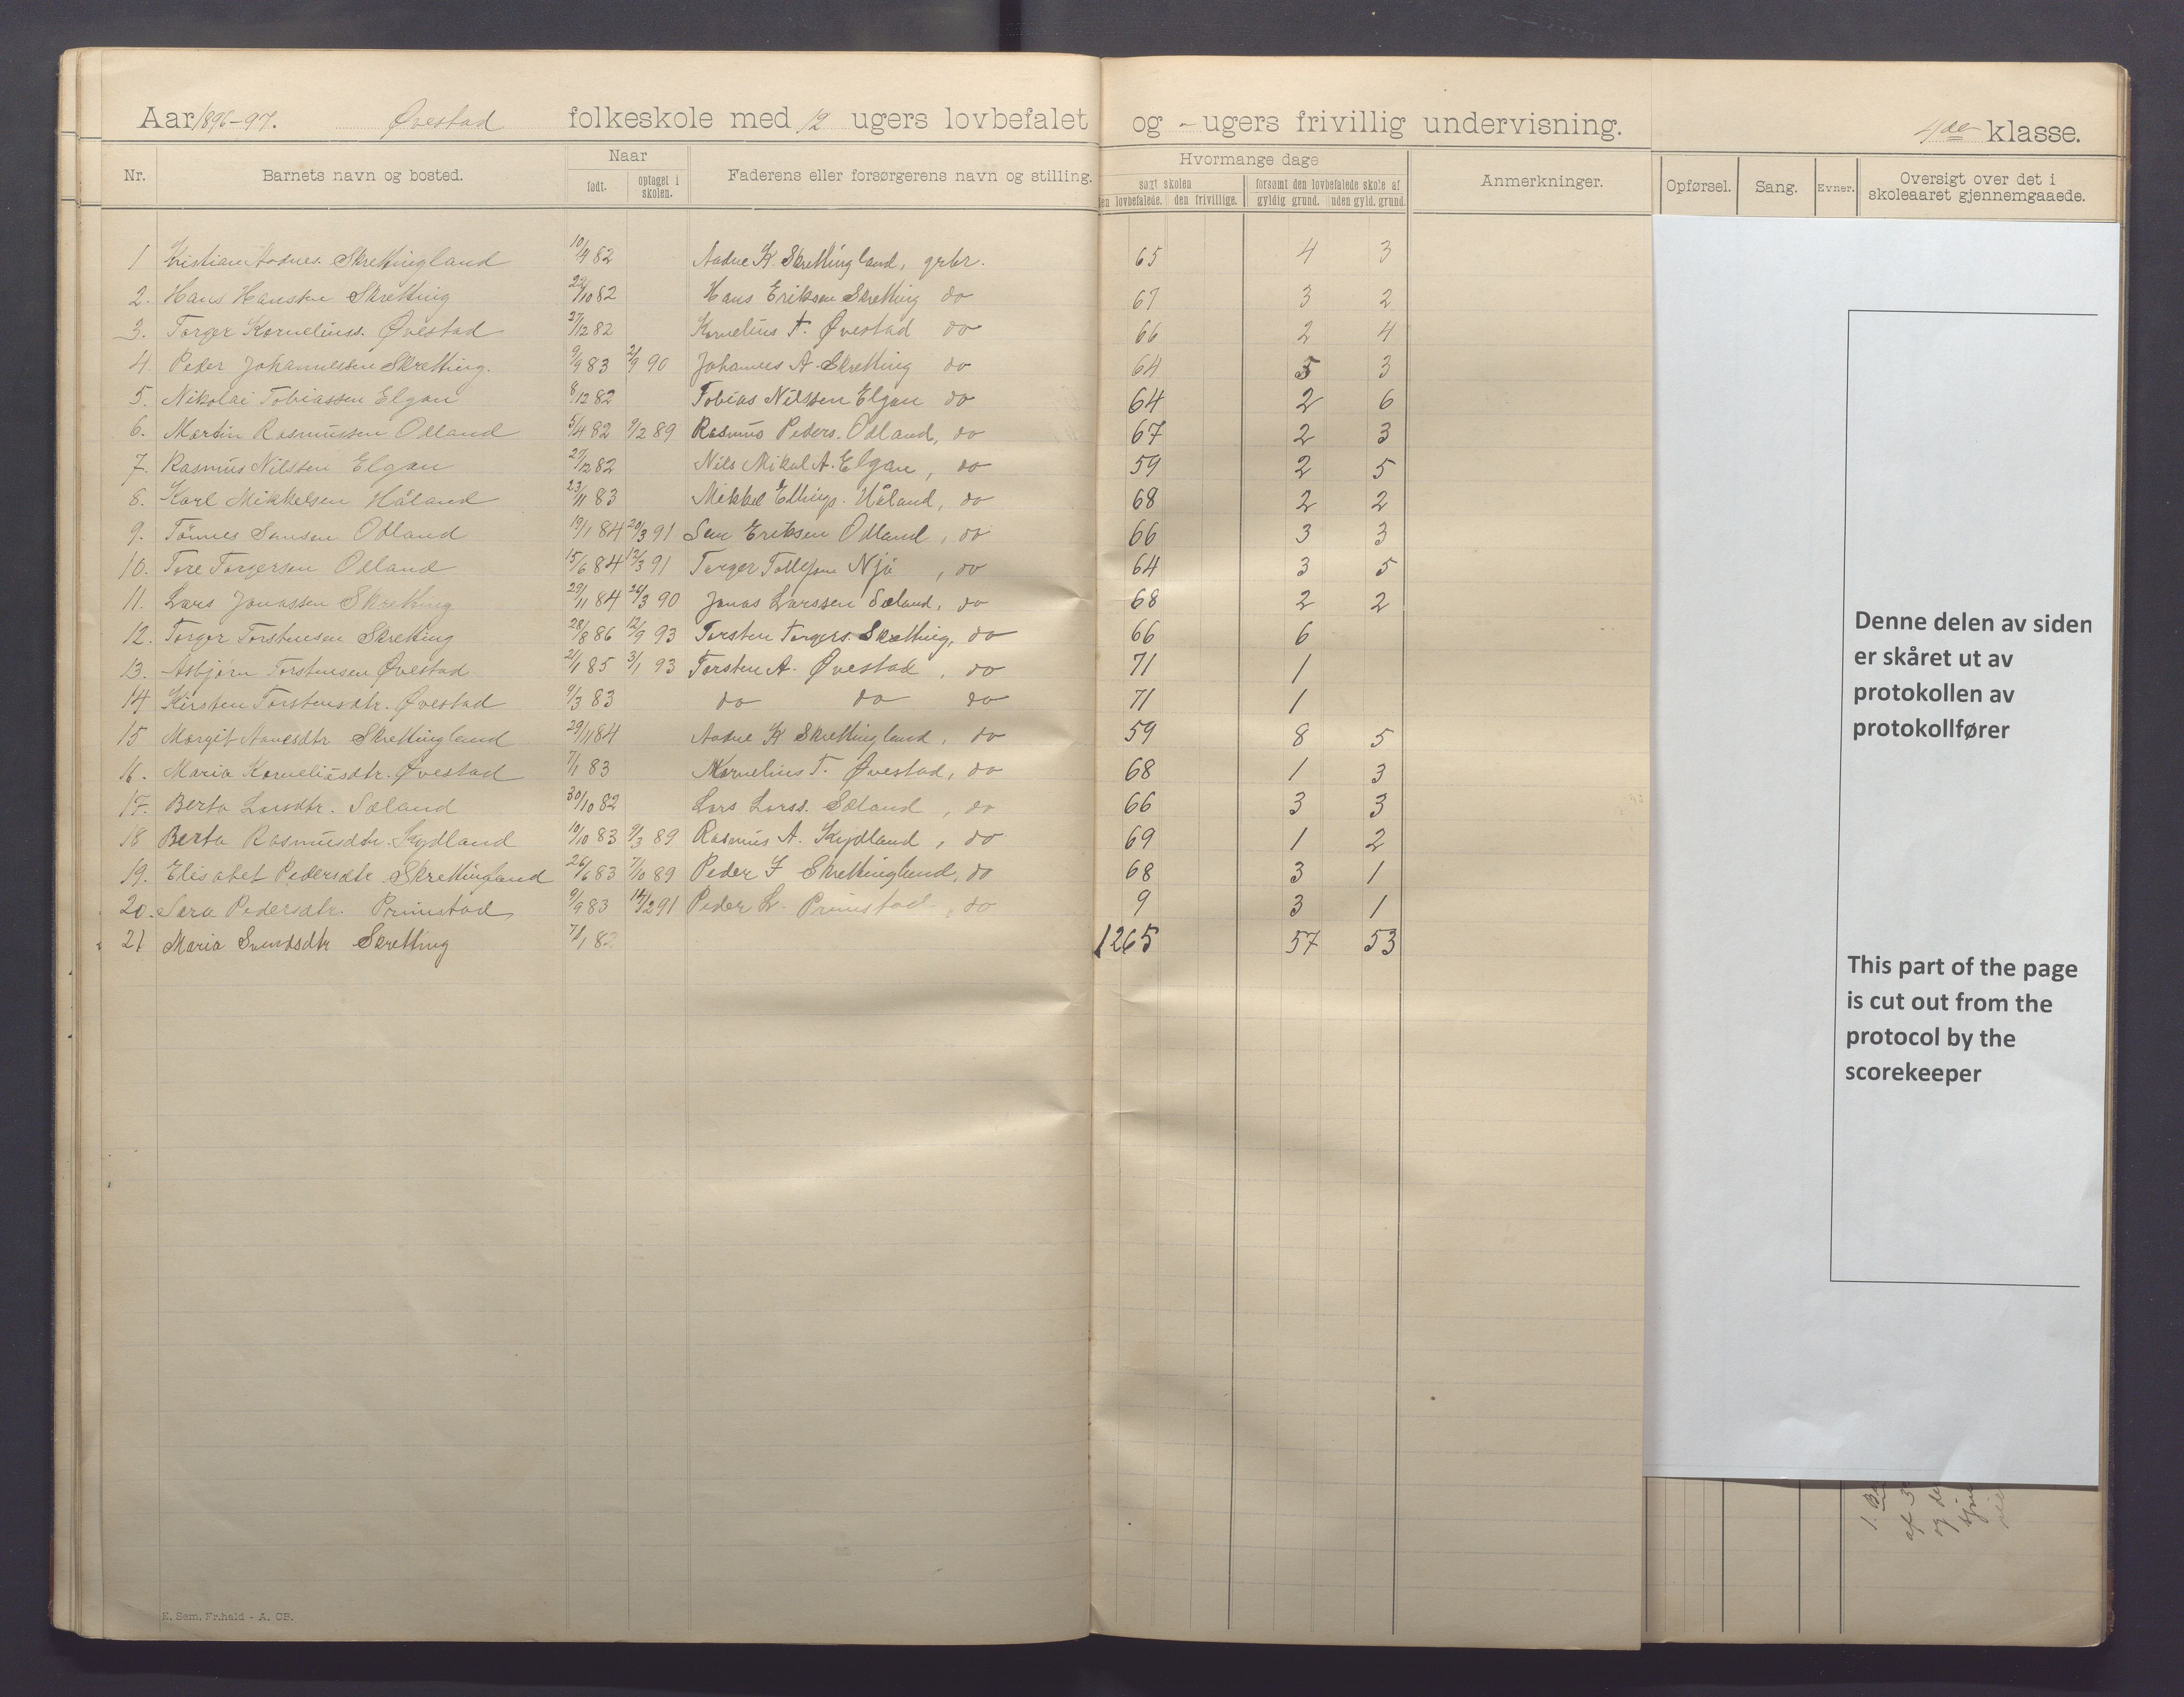 Aar 1896-97. Øvestad folkeskole med 12 ugers lovbefalet og - ugers frivillig undervisning. 4de klasse.
Nr. Barnets navn og bosted. Naar født. optaget i skolen. Faderens eller forsørgerens navn og stilling. Hvormange dage søgt skolen den lovbefalede. den frivillige. forsømt den lovbefalede skole af gyldig grund. uden gyld. grund. Anmerkninger. Opførsel. Sang. Evner. Oversigt over det i skoleaaret gjennemgaaede.
1 Kristian Aadnes. Skrettingland 10/9 82 Aadne K. Skrettingland, grbr. 65 4 3
2. Hans Hansen Skretting 22/10 82 Hans Eriksen Skretting do 67 3 2
3. Torger Korneliuss. Øvestad 27/12 82 Kornelius T. Øvestad do 66 2 4
4. Peder Johannessen Skretting. 9/9 83 2/9 90 Johannes A. Skretting do 64 5 3
5. Nikolai Tobiassen Elgan 8/12 82 Tobias Nilssen Elgan do 64 2 6
6. Martin Rasmussen Odland 5/4 82 9/2 89 Rasmus Peders. Odland, do 67 2 3
7. Rasmus Nilssen Elgan 27/12 82 Nils Mikal A. Elgan, do 59 2 5
8. Karl Mikkelsen Håland 23/11 83 Mikkel Ellings. Håland, do 68 2 2
9. Tönnes Sensen Odland 19/1 84 20/3 91 Sen Eriksen Odland, do 66 3 3
10. Tore Torgersen Odland 15/6 84 12/3 91 Torger Tollefsen Njå, do 64 3 5
11. Lars Jonassen Skretting 29/11 84 26/3 90 Jonas Larssen Sæland, do 68 2 2
12. Torger Torstensen Skretting 28/8 86 12/9 93 Torsten Torgers. Skretting, do 66 6
13. Asbjørn Torstensen Øvestad 21/1 85 3/1 93 Torsten A. Øvestad, do 71 1
14 Kirsten Torstensdtr. Øvestad 9/3 83 do do do 71 1
15 Margit Aanesdtr Skrettingland 29/11 84 Aadne K Skrettingland, do 59 8 5
16. Maria Korneliusdtr. Øvestad 7/1 83 Kornelius T. Øvestad, do 68 1 3
17. Berta Larsdtr. Sæland 30/10 82 Lars Larss. Sæland, do 66 3 3
18 Berta Rasmusdtr. Kydland 10/10 83 9/3 89 Rasmus A. Kydland, do 69 1 2
19. Elisabet Pedersdtr Skrettingland 26/6 83 7/10 89 Peder J Skrettingland, do 68 3 1
20. Sara Pedersdtr. Primstad 9/9 83 14/2 91 Peder L. Primstad, do 9 3 1
21 Maria Svendsdtr Skretting 7/1 82 1265 57 53
Denne delen av siden
er skåret ut av
protokollen av
protokollfører
This part of the page
is cut out from the
protocol by the
scorekeeper
E. Sem, Fr.hald - A. CB.